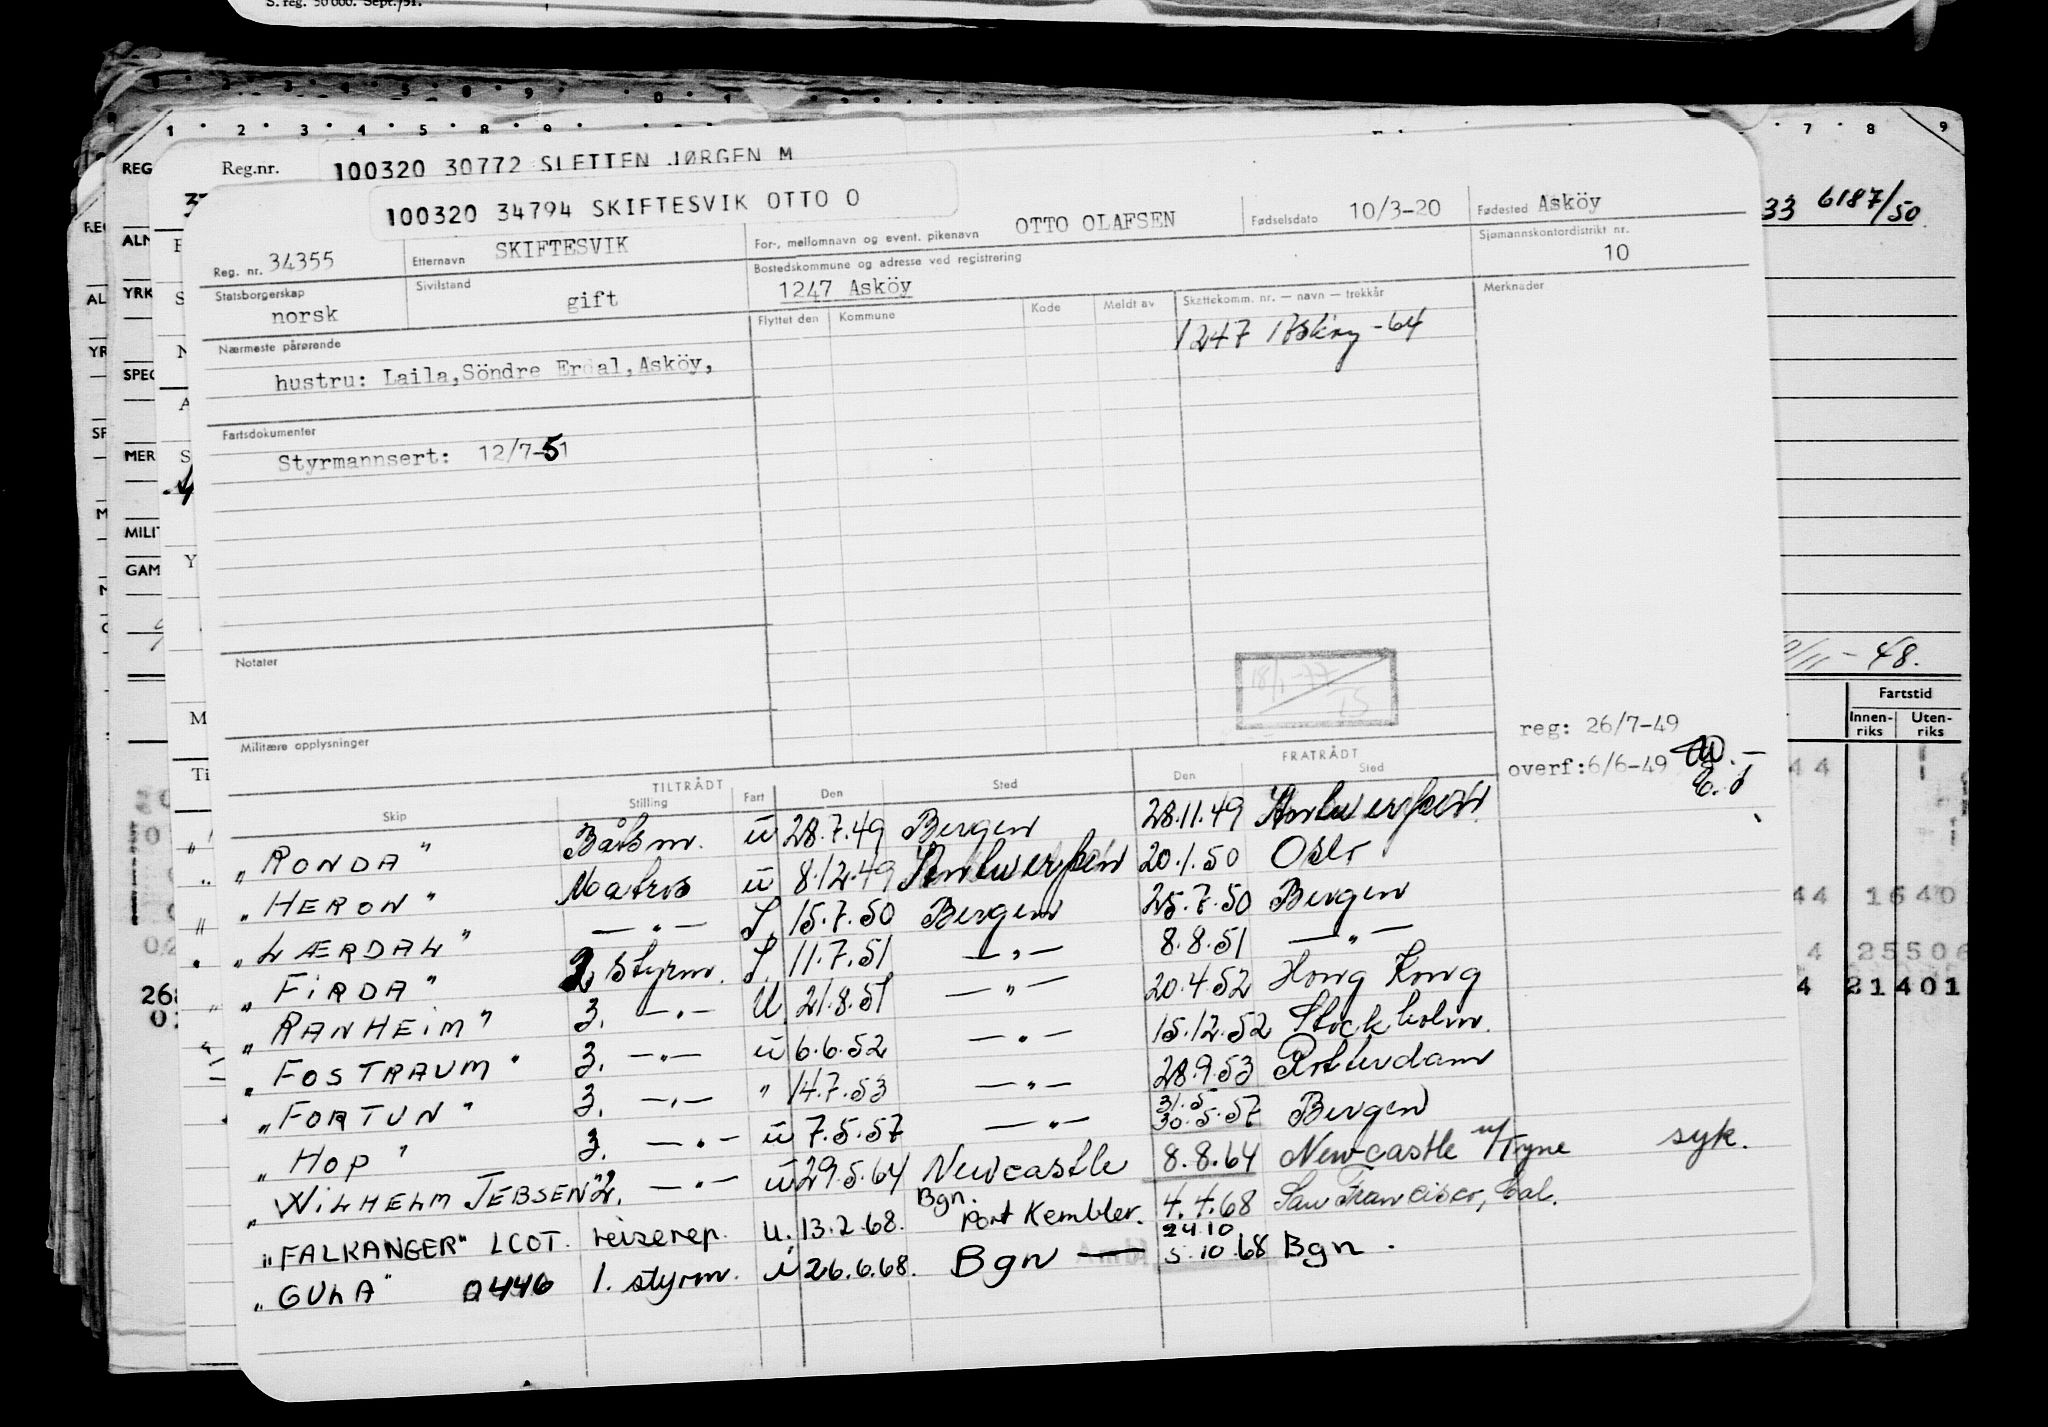 S. reg. 50 000. Sept. 51.
1 2 3 4 5 8 9 7 8 9
REG Reg.nr. 100320 30772 SLETTEN JØRGEN M
100320 34794 SKIFTESVIK OTTO O
33 6187/50
Reg. nr. 34355 Etternavn SKIFTESVIK For-, mellomnavn og event. pikenavn OTTO OLAFSEN Fødselsdato 10/3-20 Fødested Asköy
Statsborgerskap norsk Sivilstand gift Bostedskommune og adresse ved registrering 1247 Asköy Sjømannskontordistrikt nr. 10
Nærmeste pårørende Flyttet den Kommune Kode Meldt av Skattekomm. nr. — navn — trekkår Merknader
1247 Askøy -64
hustru: Laila, Söndre Erdal, Asköy,
Fartsdokumenter
Styrmannsert: 12/7-51
Notater
18/1-77
/11-48.
Fartstid
Innen- riks Uten- riks
reg: 26/7-49
overf: 6/6-49
Militære opplysninger
TILTRÅDT FRATRÅDT
Skip Stilling Fart Den Sted Den Sted
"RONDA" Båtsm. u 28.7.49 Bergen 28.11.49 Antwerpen
"HERON" Matros u 8.12.49 Antwerpen 20.1.50 Oslo
"LÆRDAL" —"— I. 15.7.50 Bergen 25.7.50 Bergen
"FIRDA" 2 styrm. I. 11.7.51 —"— 8.8.51 —"—
"RANHEIM" 3. —"— U. 21.8.51 —"— 20.4.52 Hong Kong
"FOSTRAUM" 3. —"— u 6.6.52 —"— 15.12.52 Stockholm.
"FORTUN" 3. —"— " 14.7.53 —"— 28.9.53 Rotterdam
"HOP" 3. —"— u 7.5.57 —"— 31.5 30.5.57 Bergen
"WILHELM JEBSEN" 2. —"— u 29.5.64 Newcastle 8.8.64 Newcastle u/Tyne syk.
"FALKANGER" LCOT. reiserep. u. 13.2.68. Bgn. Port Kembler. 4.4.68 San Francisco, Cal.
"GULA" 0446 1. styrm. i 26.6.68. Bgn — 24.10 5.10.68 Bgn.
44
44 1640
4 25506
4 21401